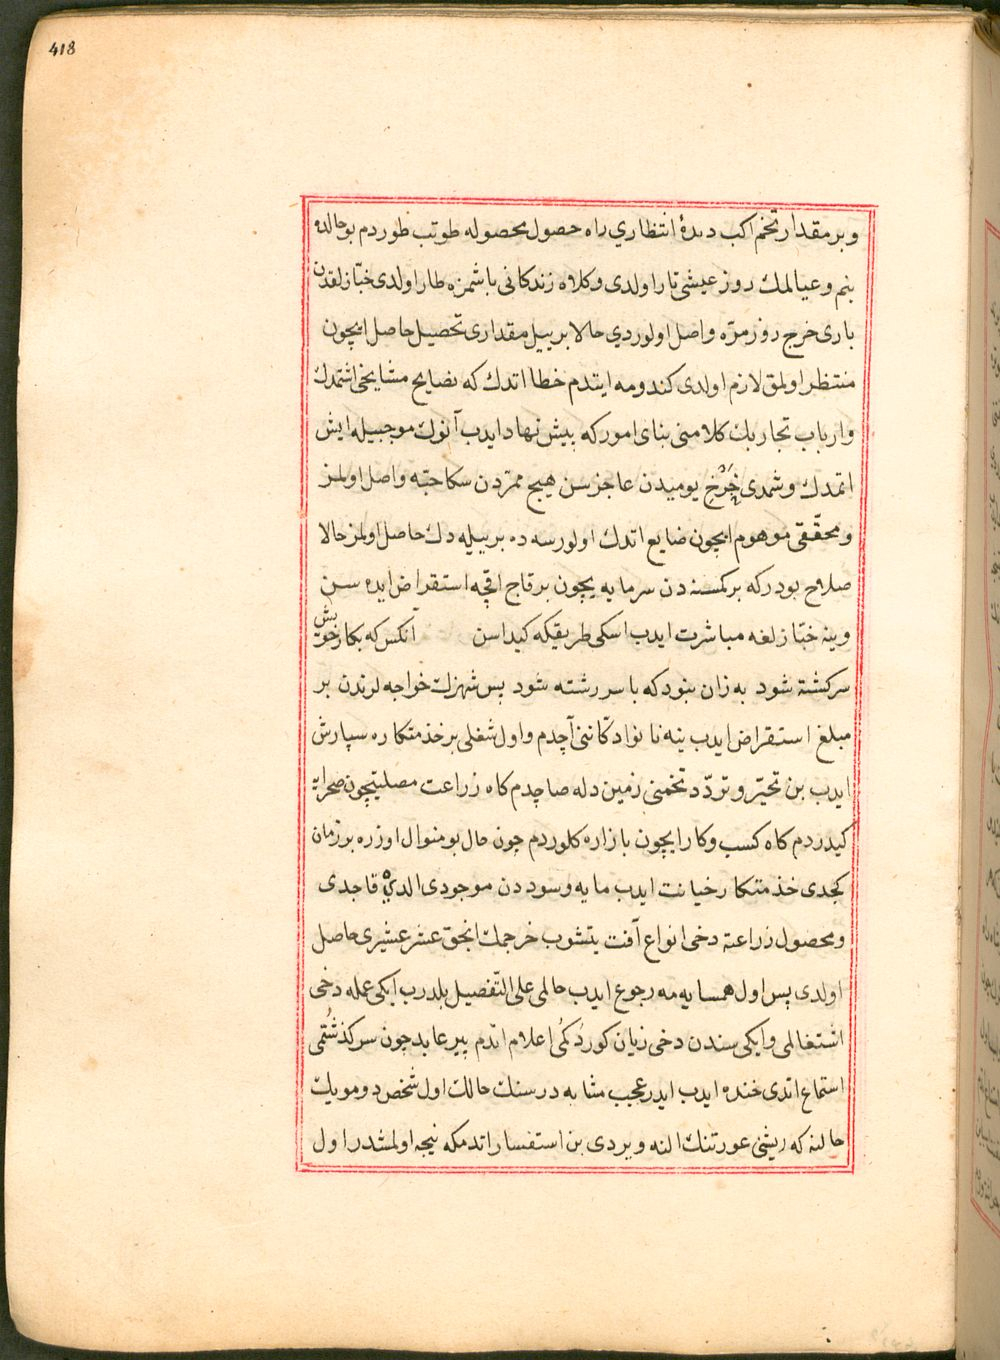 418
و بر مقدار تخم اكب ديدهٔ انتظاري راه حصول محصوله طوتب طوردم بو حالده
بنم و عيالمك روز عيشى تار اولدى و كلاه زندكانى باشمزه طار اولدى خبّازلقدن
بارى خرج روزمرّه واصل اولوردي حالا بر ييل مقدارى تحصيل حاصل ايچون
منتظر اولمق لازم اولدى كندومه ايتدم خطا اتدك كه نصايح مشايخى اشتمدك
و ارباب تجاربك كلامنى بناى امور كه پيش نهاد ايدب آنوك موجبيله ايش
اتمدك و شمدى خَرْج يوميدن عاجزسن هيچ ممرّدن سكا حبّه واصل اولمز
و محقّقى موهوم ايچون ضايع اتدك اولورسه ده بر ييله دك حاصل اولمز حالا
صلاح بودر كه بر كمسنه دن سرمايه يچون بر قاج اقچه استقراض ايده سن
و ينه خبّازلغه مباشرت ايدب اسكى طريقكه كيداسن آنكس كه بكار خويش
سركشته شود به زان نبود كه با سر رشته شود پس شهرك خواجه لرندن بر
مبلغ استقراض ايدب ينه نانوا دكّاننى آچدم و اول شغلى بر خذمتكاره سپارش
ايدب بن تحيّر و تردّد تخمنى زمين دله صاچدم كاه زراعت مصلحتيچون صحرايه
كيدردم كاه كسب و كار ايچون بازاره كلوردم چون حال بو منوال اوزره بر زمان
كجدى خذمتكار خيانت ايدب مايه و سوددن موجودى الدى قاجدى
و محصول زراعته دخى انواع آفت يتشوب خرجمك انجق عشر عشيرى حاصل
اولدى پس اول همسايه مه رجوع ايدب حالمى على التّفصيل بلدرب ايكى عمله دخى
اشتغالمى و ايكى سندن دخى زيان كوردكمى اعلام اتدم پير عابد چون سركذشتمى
استماع اتدى خنده ايدب ايدر عجب مشابه در سنك حالك اول شخص دو مويك
حالنه كه ريشنى عورتنك النه ويردى بن استفسار اتدمكه نيجه اولمشدر اول